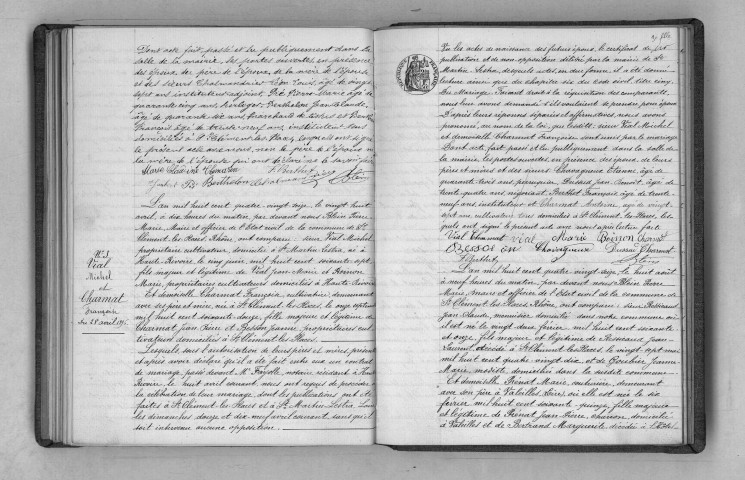 Dont acte fait, passé et lu publiquement dans la
salle de la mairie, les portes ouvertes, en présence
des époux, du père de l'épouse, de la mère de l'époux
et des sieurs Léon Louis, âgé de vingt
sept ans, instituteur adjoint, Pierre Marie âgé de
quarante cinq ans, horloger, Berthelon Jean Claude,
âgé de quarante six ans, marchand de
François âgé de trente neuf ans, instituteur, tous
domiciliés à St Clément les Places, lesquels ont signé
le présent acte avec nous, non le père de l'épouse
la mère de l'époux qui ont déclaré ne le savoir faire
Marie Claudine
Berthelon
N° 5
Vial
Michel
et
Charmat
Françoise
du 28 avril 1896
L'an mil huit cent quatre vingt seize, le vingt huit
avril, à dix heures du matin, par devant nous Blein Pierre
Marie, Maire et officier de l'Etat civil de la commune de St
Clément les Places Rhône, ont comparu : sieur Vial Michel
propriétaire cultivateur, domicilié à St Martin Lestra, né à
Haute Rivoire le cinq juin mil huit cent soixante sept,
fils majeur et légitime de Vial Jean Marie et Poinson
Marie, propriétaires cultivateurs domiciliés à Haute Rivoire
Et demoiselle Charmat Françoise, cultivatrice, demeurant
avec ses père et mère, née à St Clément les Places, le onze
mil huit cent soixante douze, fille majeure et légitime de
Charmat Jean Pierre et Besson Jeanne, propriétaires cul
tivateurs domiciliés à St Clément les Places.
Lesquels, sous l'autorisation de leurs pères et mères, présents
et après avoir déclaré qu'il a été fait entre eux un contrat
de mariage passé devant Me Fayolle, notaire résidant à Haute
Rivoire, le huit avril courant, nous ont requis de procéder à
la célébration de leur mariage, dont les publications ont été
faites à St Clément les Places et à St Martin Lestra, tous
les dimanches douze et dix neuf avril courant, sans qu'il
soit intervenu aucune opposition.
Vu les actes de naissance des futurs époux, le certificat de
publication et de non opposition délivré par la mairie de St
Martin Lestra, desquels actes, en due forme, il a été donné
lecture ainsi que du chapitre six du code civil, titre cinq,
du Mariage. Faisant droit à la réquisition des comparants,
nous leur avons demandé s'ils voulaient se prendre pour époux
D'après leurs réponses séparées et affirmatives, nous avons
prononcé, au nom de la loi, que lesdits : sieur Vial Michel
et demoiselle Charmat Françoise, sont unis par le mariage
Dont acte, fait, passé et lu publiquement dans la salle de
la mairie, les portes ouvertes, en présence des époux, de leurs
pères et mères et des sieurs Chavagneux Etienne, âgé de
quarante trois ans, perruquier, Dussud Jean Benoît, âgé de
trente quatre ans, négociant, Berthet François, âgé de trente
neuf ans, instituteur et Charmat Antoine, âgé de vingt
sept ans, cultivateur, tous domiciliés à St Clément les Places, les
quels ont signé le présent acte avec nous après lecture faite
Vial Charmat Vial Marie Poinson
Besson Chavagneux Dussud Charmat
Berthet Blein
L'an mil huit cent quatre vingt seize, le huit août
à neuf heures du matin, par devant nous Blein Pierre
Marie, maire et officier de l'Etat civil de la commune de
St Clément les Places, Rhône, ont comparu : sieur
Jean Claude, menuisier, domicilié dans notre commune où
il est né le vingt deux février, mil huit cent soixante
et onze, fils majeur et légitime de Jean
Laurent, décédé à St Clément les Places, le vingt sept mai
mil huit cent quatre vingt dix, et de Goubier Jeanne
Marie, modiste, domiciliée dans la susdite commune
Et demoiselle Prenat Marie, couturière, demeurant
avec son père à Valeilles, Loire, où elle est née le six
février, mil huit cent soixante quinze, fille majeure
et légitime de Prenat Jean Pierre, charron, domicilié
à Valeilles et de Bertrand Marguerite, décédée à